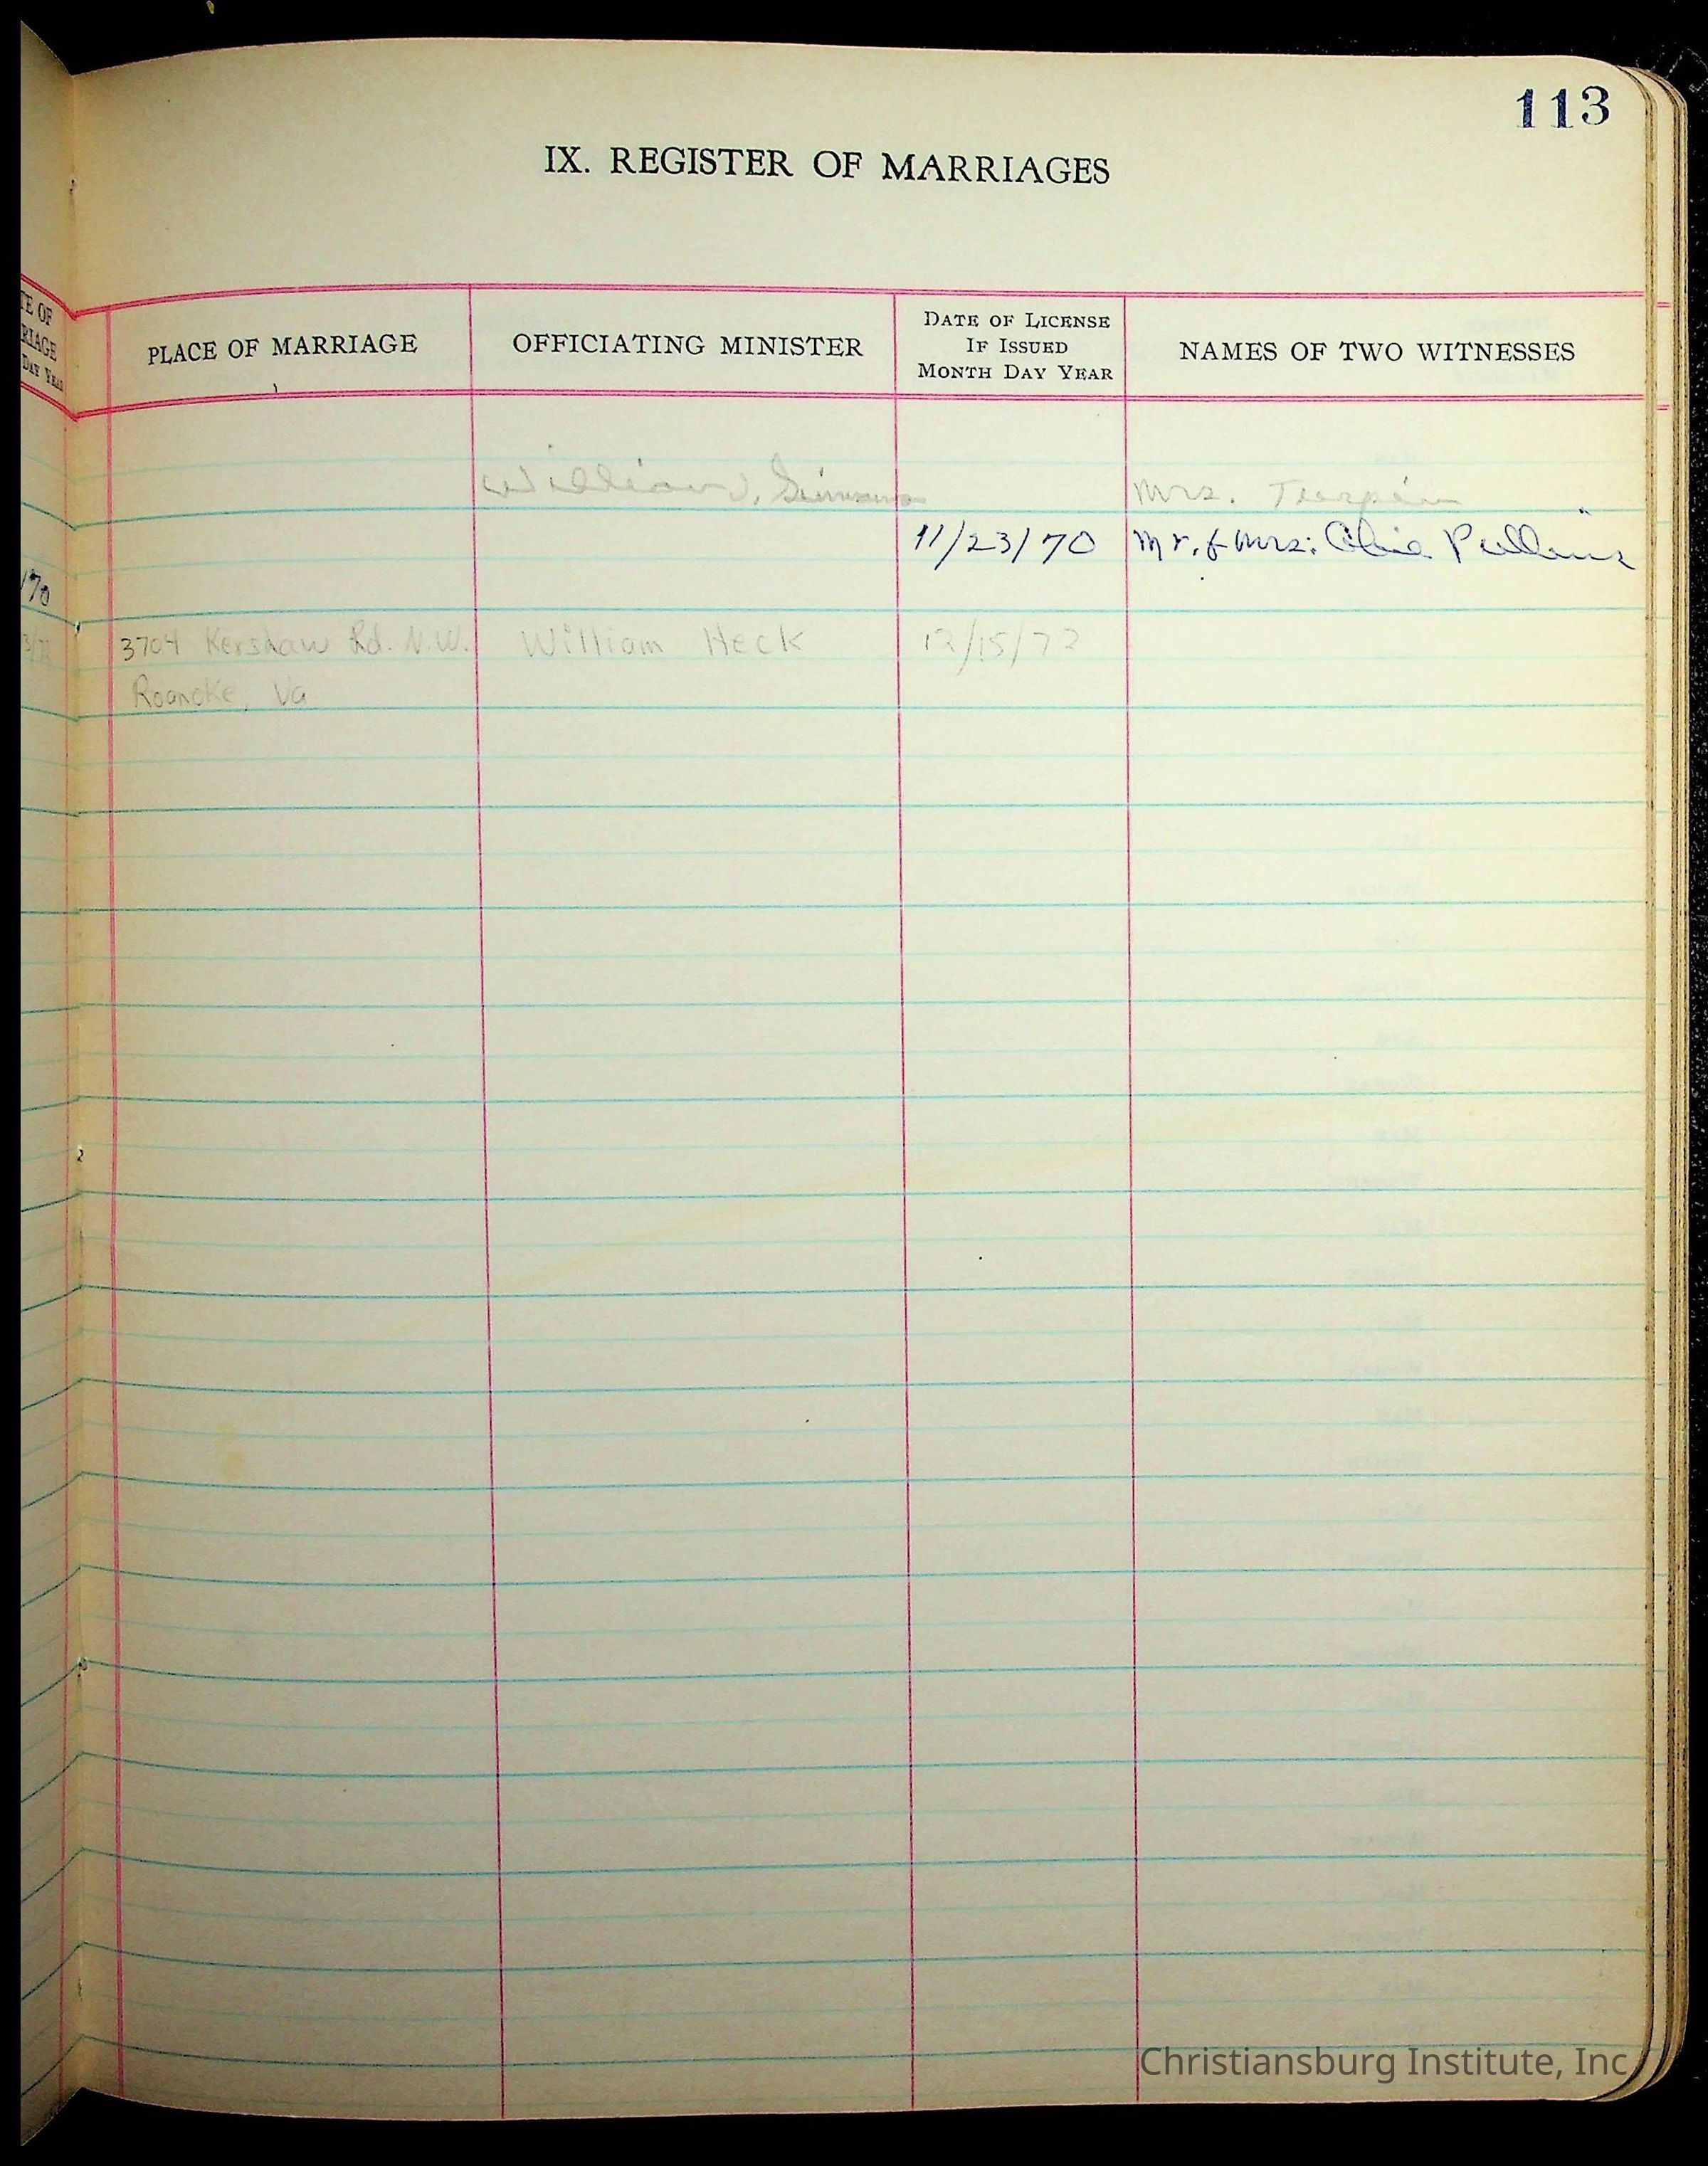 113
IX. REGISTER OF MARRIAGES
TE OF
RIAGE
DAY YEAR
PLACE OF MARRIAGE
OFFICIATING MINISTER
DATE OF LICENSE
IF ISSUED
MONTH DAY YEAR
NAMES OF TWO WITNESSES
William J. Simmons
Mrs. Turpin
11/23/70 Mr. & Mrs. Pullins
/70
3704 Kershaw Rd. N.W. William Heck 12/15/72
Roanoke, Va
Christiansburg Institute, Inc